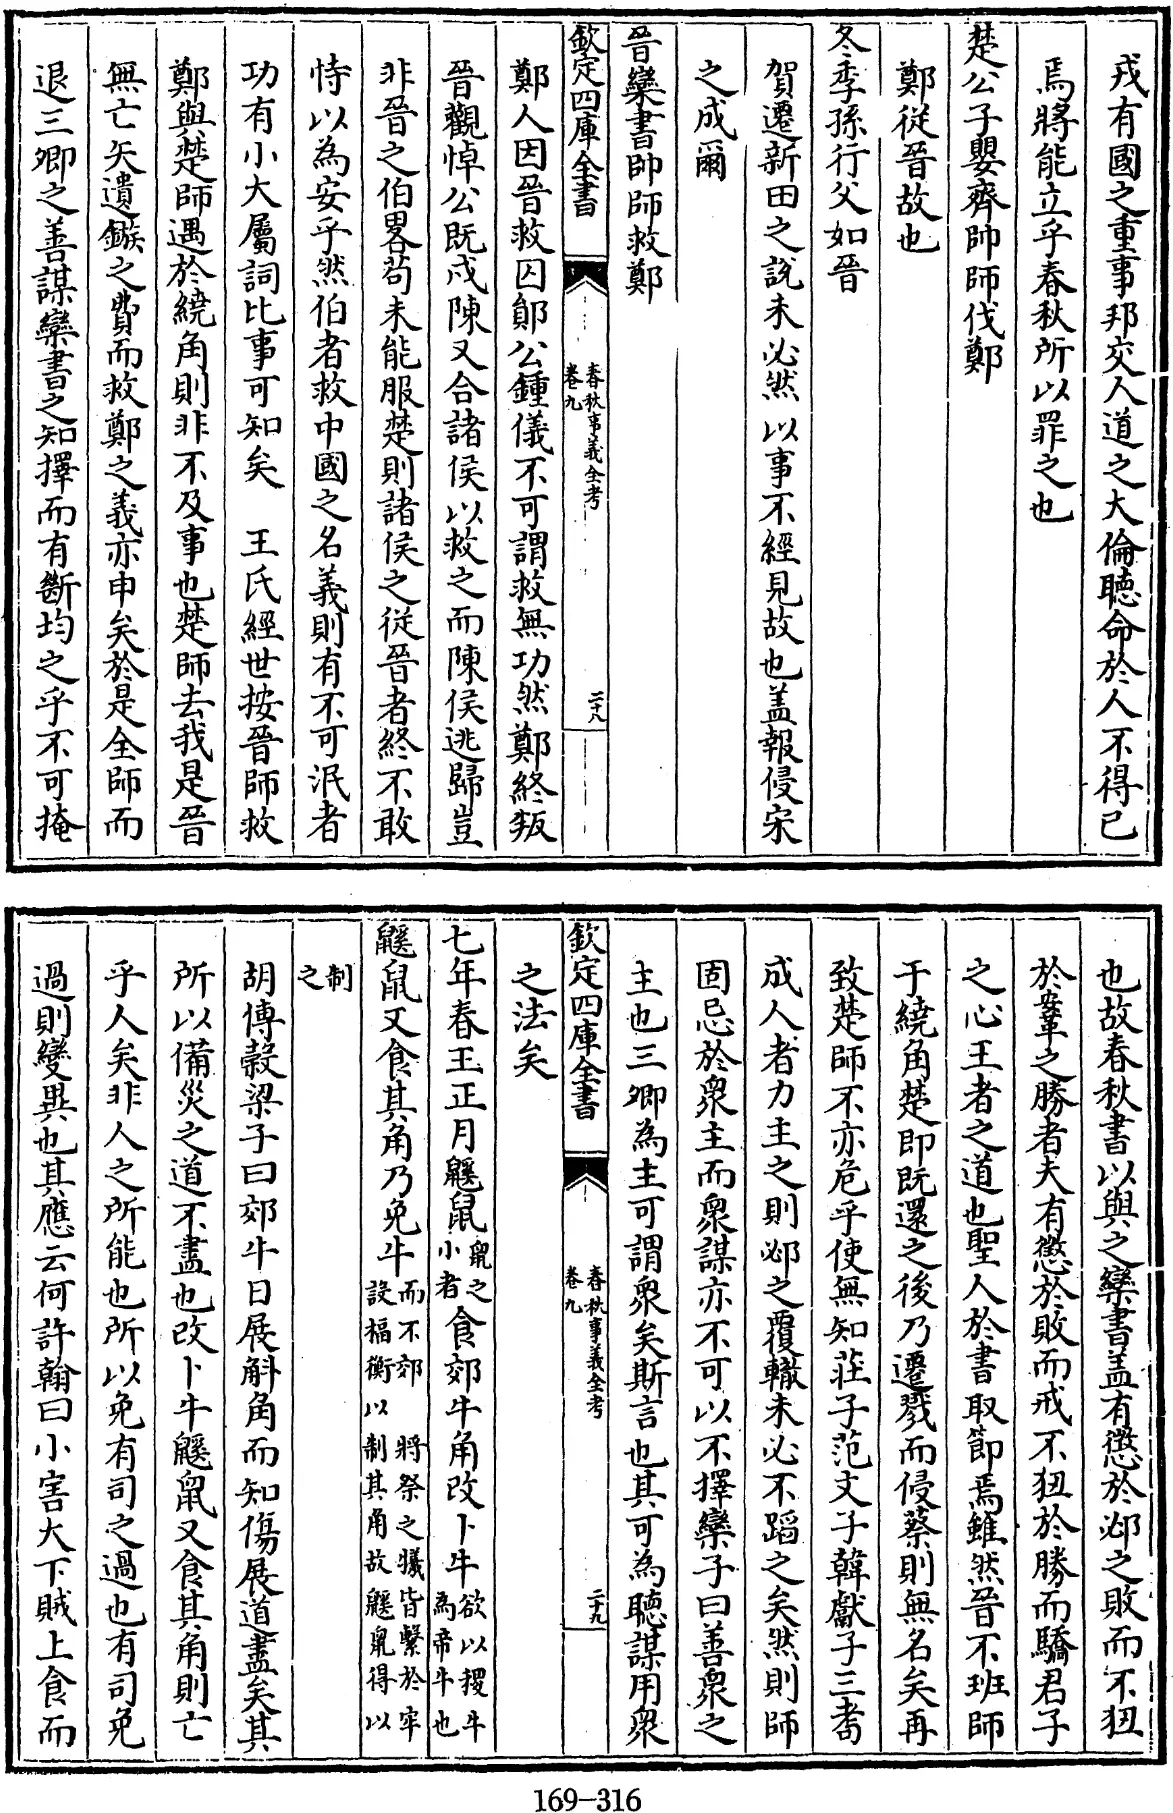 戎有國之重事邦交人道之大倫聽命於人不得已
焉將能立乎春秋所以罪之也
楚公子嬰齊帥師伐鄭
鄭從晉故也
冬季孫行父如晉
賀遷新田之説未必然以事不經見故也盖報侵宋
之成爾
晉欒書帥師救鄭
欽定四庫全書
春秋事義全考
卷九
二十八
鄭人因晉救囚鄖公鍾儀不可謂救無功然鄭終叛
晉觀悼公既戍陳又合諸侯以救之而陳侯逃歸豈
非晉之伯畧苟未能服楚則諸侯之從晉者終不敢
恃以為安乎然伯者救中國之名義則有不可泯者
功有小大屬詞比事可知矣 王氏經世按晉師救
鄭與楚師遇於繞角則非不及事也楚師去我是晉
無亡矢遺鏃之費而救鄭之義亦申矣於是全師而
退三卿之善謀欒書之知擇而有斷均之乎不可掩
也故春秋書以與之欒書盖有懲於邲之敗而不狃
於鞌之勝者夫有懲於敗而戒不狃於勝而驕君子
之心王者之道也聖人於書取節焉雖然晉不班師
于繞角楚即既還之後乃遷戮而侵蔡則無名矣再
致楚師不亦危乎使無知莊子范文子韓獻子三耆
成人者力主之則邲之覆轍未必不蹈之矣然則師
固忌於衆主而衆謀亦不可以不擇欒子曰善衆之
主也三卿為主可謂衆矣斯言也其可為聽謀用衆
欽定四庫全書
春秋事義全考
卷九
二十九
之法矣
七年春王正月鼷鼠鼠之小者食郊牛角改卜牛欲以稷牛為帝牛也
鼷鼠又食其角乃免牛而不郊 將祭之犧皆繫於牢設楅衡以制其角故鼷鼠得以
制之
胡傳穀梁子曰郊牛日展斛角而知傷展道盡矣其
所以備災之道不盡也改卜牛鼷鼠又食其角則亡
乎人矣非人之所能也所以免有司之過也有司免
過則變異也其應云何許翰曰小害大下賊上食而
169-316